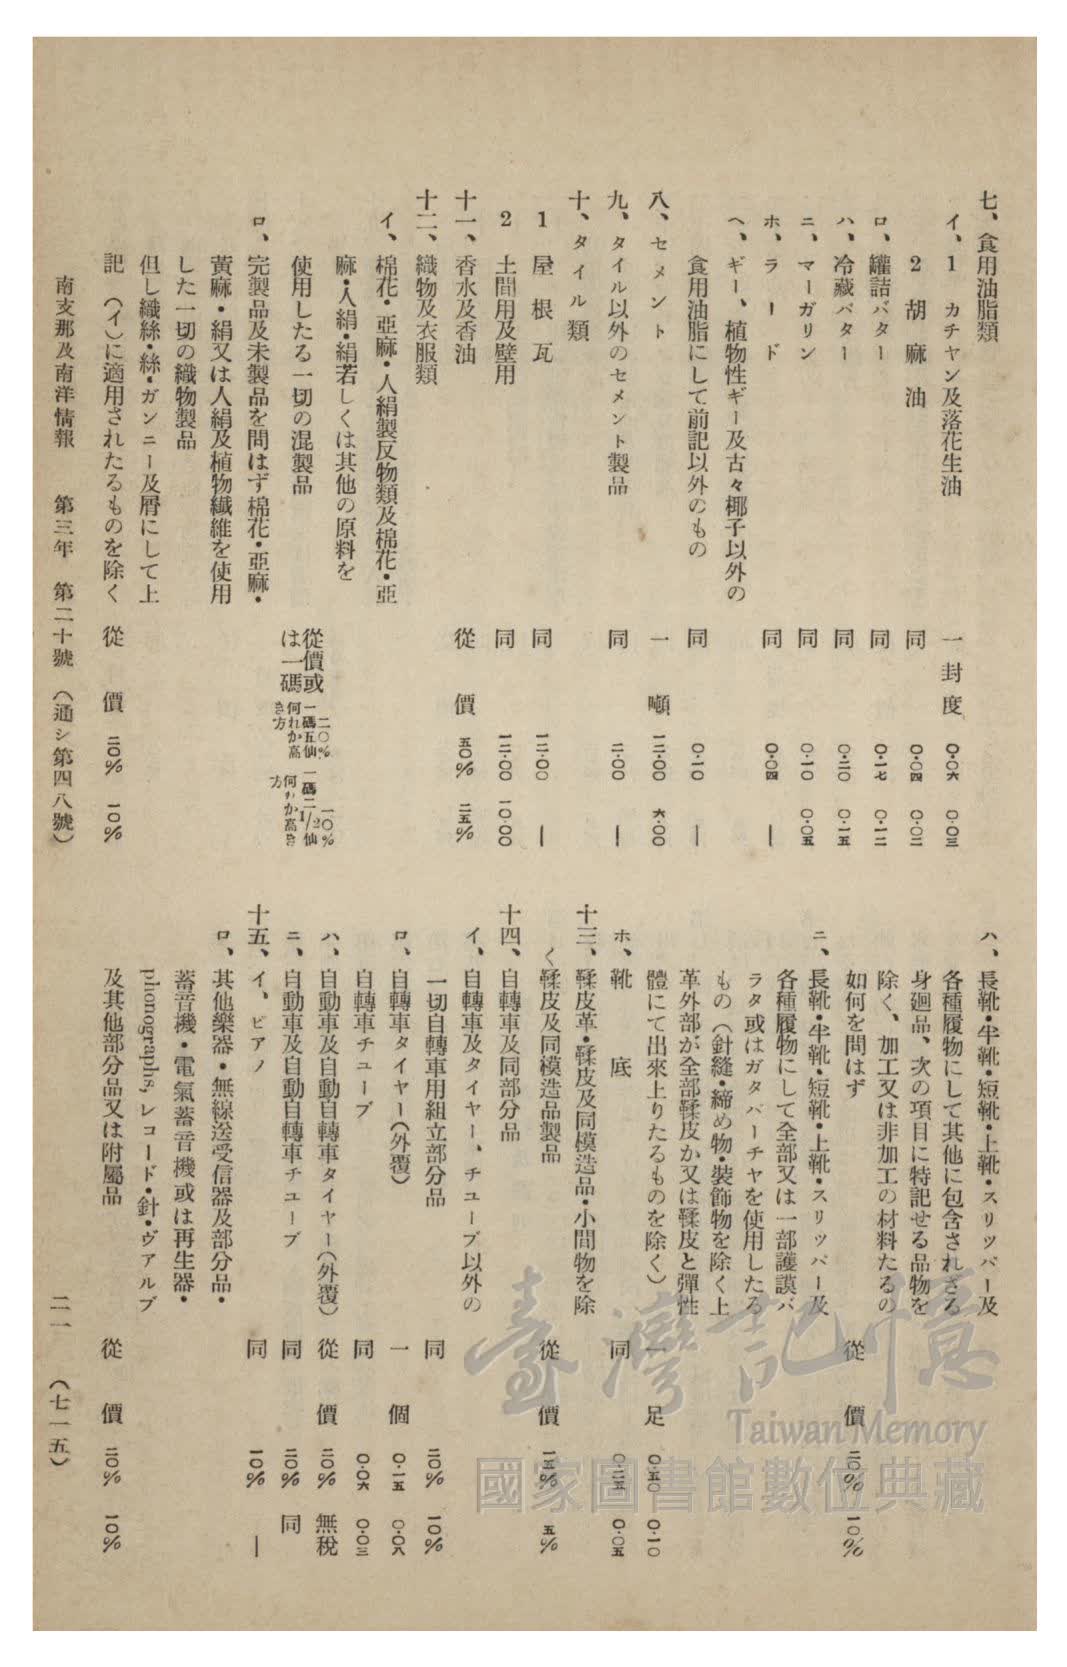 七、食用油脂類
イ、1 カチヤン及落花生油 一封度 〇・〇六 〇・〇三
2 胡麻油 同 〇・〇四 〇・〇二
ロ、罐詰バター 同 〇・一七 〇・一二
ハ、冷藏バター 同 〇・二〇 〇・一五
ニ、マーガリン 同 〇・一〇 〇・〇五
ホ、ラード 同 〇・〇四 ―
ヘ、ギー、植物性ギー及古々椰子以外の
食用油脂にして前記以外のもの 同 〇・一〇 ―
八、セメント 一噸 一二・〇〇 六・〇〇
九、タイル以外のセメント製品 同 二・〇〇 ―
十、タイル類
1 屋根瓦 同 一二・〇〇 ―
2 土間用及壁用 同 一二・〇〇 一〇・〇〇
十一、香水及香油 從價 五〇% 二五%
十二、織物及衣服類
イ、棉花・亞麻・人絹製反物類及棉花・亞
麻・人絹・絹若しくは其他の原料を
使用したる一切の混製品 從價或は一碼 二〇%一碼五仙何れか高き方 一〇%一碼二1/2仙何れか高き方
ロ、完製品及未製品を問はず棉花・亞麻・
黃麻・絹又は人絹及植物纖維を使用
した一切の織物製品
但し織絲・絲・ガンニー及屑にして上
記(イ)に適用されたるものを除く 從價 二〇% 一〇%
南支那及南洋情報 第三年 第二十號 (通シ第四八號)
ハ、長靴・半靴・短靴・上靴・スリッパー及
各種履物にして其他に包含されざる
身廻品、次の項目に特記せる品物を
除く、加工又は非加工の材料たるの
如何を問はず 從價 二〇% 一〇%
ニ、長靴・半靴・短靴・上靴・スリッパー及
各種履物にして全部又は一部護謨バ
ラタ或はガタパーチヤを使用したる
もの(針縫・締め物・裝飾物を除く上
革外部が全部鞣皮か又は鞣皮と彈性
體にて出來上りたるものを除く) 一足 〇・五〇 〇・一〇
ホ、靴底 同 〇・二五 〇・〇五
十三、鞣皮革・鞣皮及同模造品・小間物を除
く鞣皮及同模造品製品 從價 一五% 五%
十四、自轉車及同部分品
イ、自轉車及タイヤー、チユーブ以外の
一切自轉車用組立部分品 同 二〇% 一〇%
ロ、自轉車タイヤー(外覆) 一個 〇・一五 〇・〇八
自轉車チユーブ 同 〇・〇六 〇・〇三
ハ、自動車及自動自轉車タイヤー(外覆) 從價 二〇% 無稅
ニ、自動車及自動自轉車チユーブ 同 二〇% 同
十五、イ、ピアノ 同 一〇% ―
ロ、其他樂器・無線送受信器及部分品・
蓄音機・電氣蓄音機或は再生器・
phonographs,レコード・針・ヴアルブ
及其他部分品又は附屬品 從價 二〇% 一〇%
二一 (七一五)
臺灣記憶
Taiwan Memory
國家圖書館數位典藏